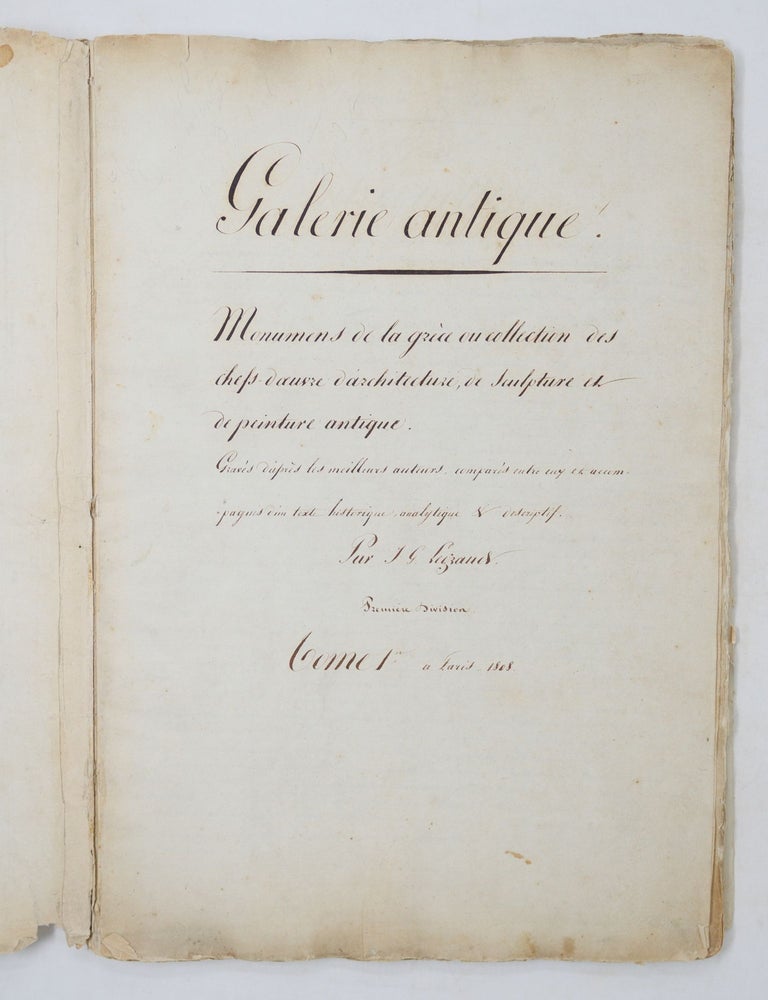 Galerie antique.
Monumens de la grèce ou collection des
chefs-d'œuvre d'architecture, de sculpture et
de peinture antique.
Gravés d'après les meilleurs auteurs, comparés entre eux et accom-
-pagnés d'un texte historique, analytique & descriptif.
Par J G Legrand.
Première Division.
Tome 1er a Paris - 1808.